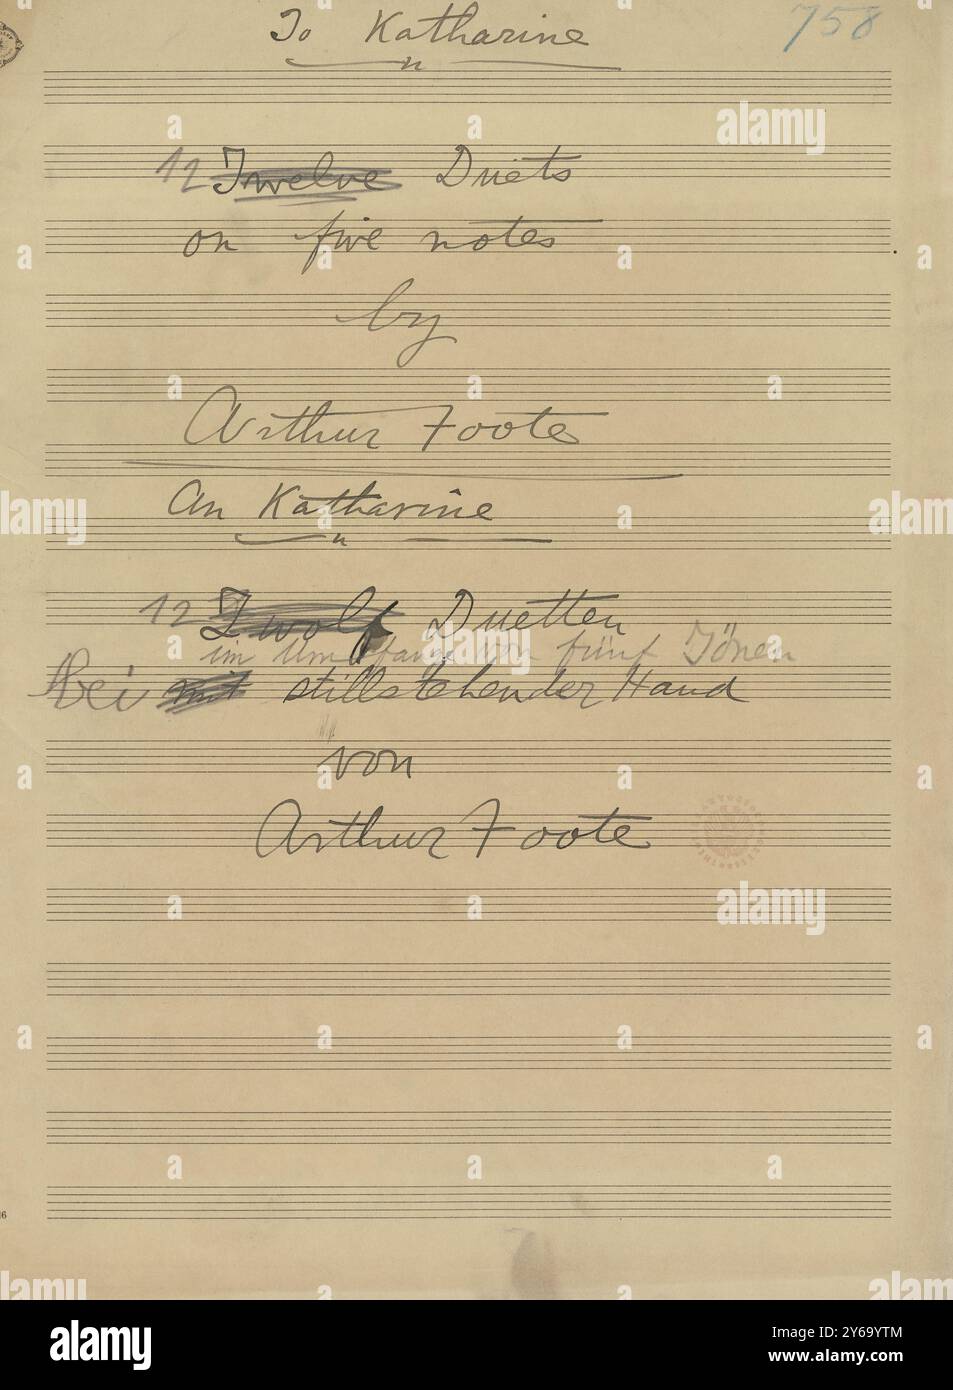 To Katharine
758
12 Twelve Duets
on five notes
by
Arthur Foote
An Katharine
12 Zwolf Duetten
im Umfange von fünf Tönen
Bei mit stillstehender Hand
von
Arthur Foote
alamy
alamy
Image ID: 2Y69YTM
www.alamy.com